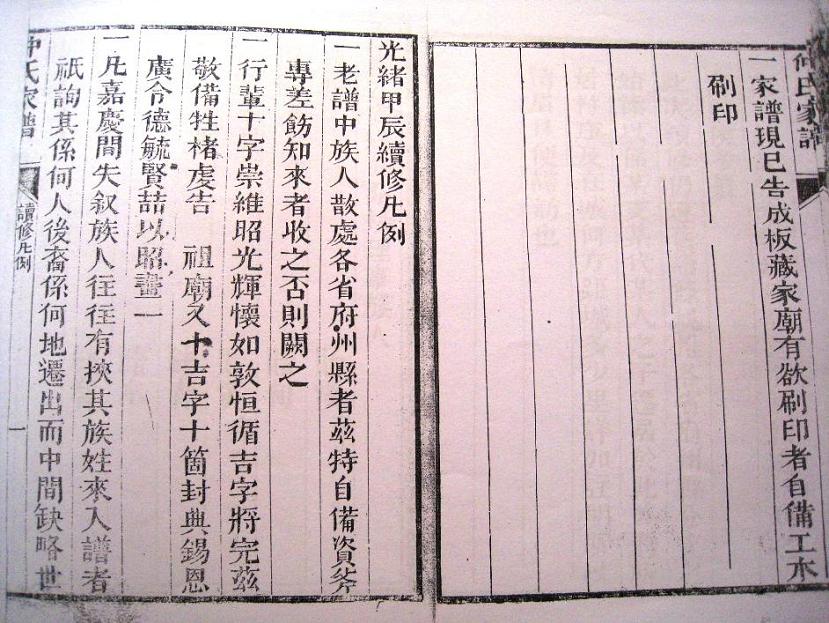 仲氏家譜
一家譜現已告成板藏家廟有欲刷印者自備工本
刷印
光緒甲辰續修凡例
一老譜中族人散處各省府州縣者茲特自備資斧
專差飭知來者收之否則闕之
一行輩十字崇維昭光輝懷如敦恒循吉字將完茲
敬備牲楮虔告　祖廟又十吉字十箇封典錫恩
廣令德毓賢喆以昭畫一
一凡嘉慶間失叙族人往往有挾其族姓來入譜者
祇詢其係何人後裔係何地遷出而中間缺略世
仲氏家譜
續修凡例
一